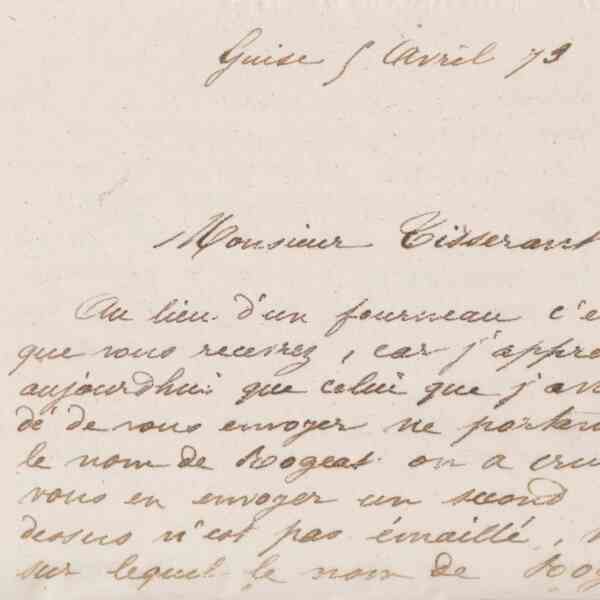 Guise 5 Avril 73
Monsieur Tisserant
Au lieu d'un fourneau c'e
que vous recevrez, car j'appre
aujourdhui que celui que j'av
dé de vous envoyer ne portan
le nom de Rogeat on a cru
vous en envoyer un second
dessus n'est pas émaillé,
sur lequel le nom de Rog